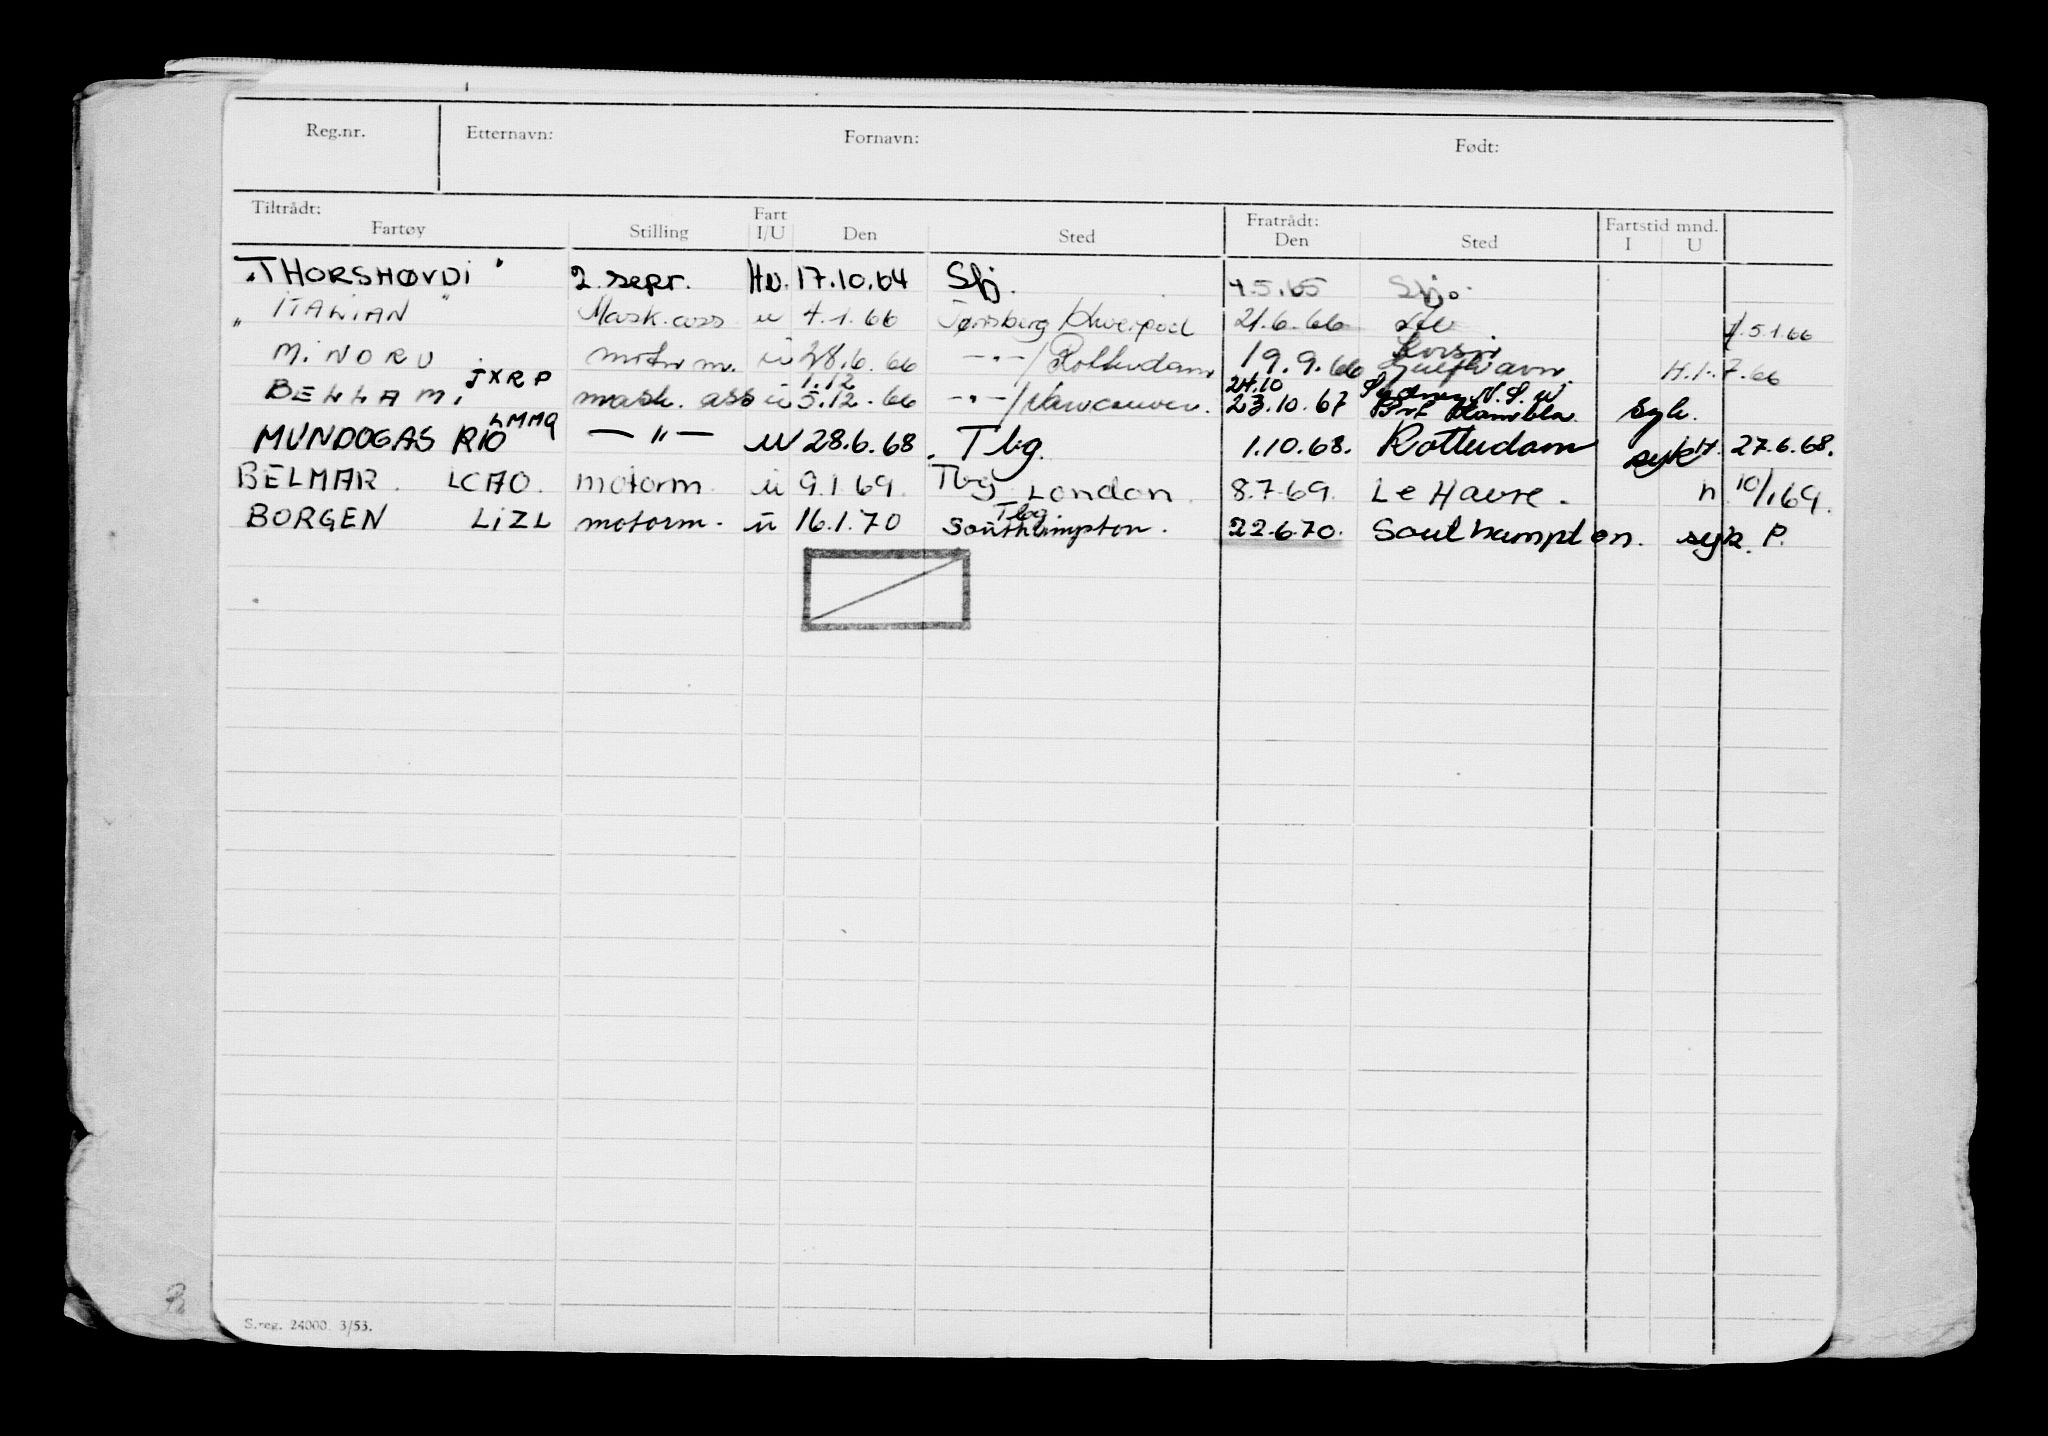 Reg.nr. Etternavn: Fornavn: Født:
Tiltrådt: Fratrådt: Fartstid mnd.
Fartøy Stilling Fart I/U Den Sted Den Sted I U
"THORSHØVDI" 2. sepr. Hv. 17.10.64 Sfj. 4.5.65 Sfj.
" ITALIAN " Mask. ass u 4.1.66 Tønsberg / Liverpool 21.6.66 5.1.66
MINORU motorm. u 28.6.66 -"-/ Rotterdam 19.9.66 H. 1.7.66
BELLAMI JXRP mask. ass u 1.12 5.12.66 -"-/ Vancouver. 24.10 23.10.67 Sydney N.S.W syk.
MUNDOGAS RIO LMMQ — " — u 28.6.68. Tbg. 1.10.68. Rotterdam syk H. 27.6.68.
BELMAR. LCAO. motorm. u 9.1.69. Tbg London. 8.7.69. Le Havre. h. 10/1.69.
BORGEN LIZL motorm. u 16.1.70 Tbg Southampton. 22.6.70. Southampton. syk. P.
S.reg. 24000. 3/53.